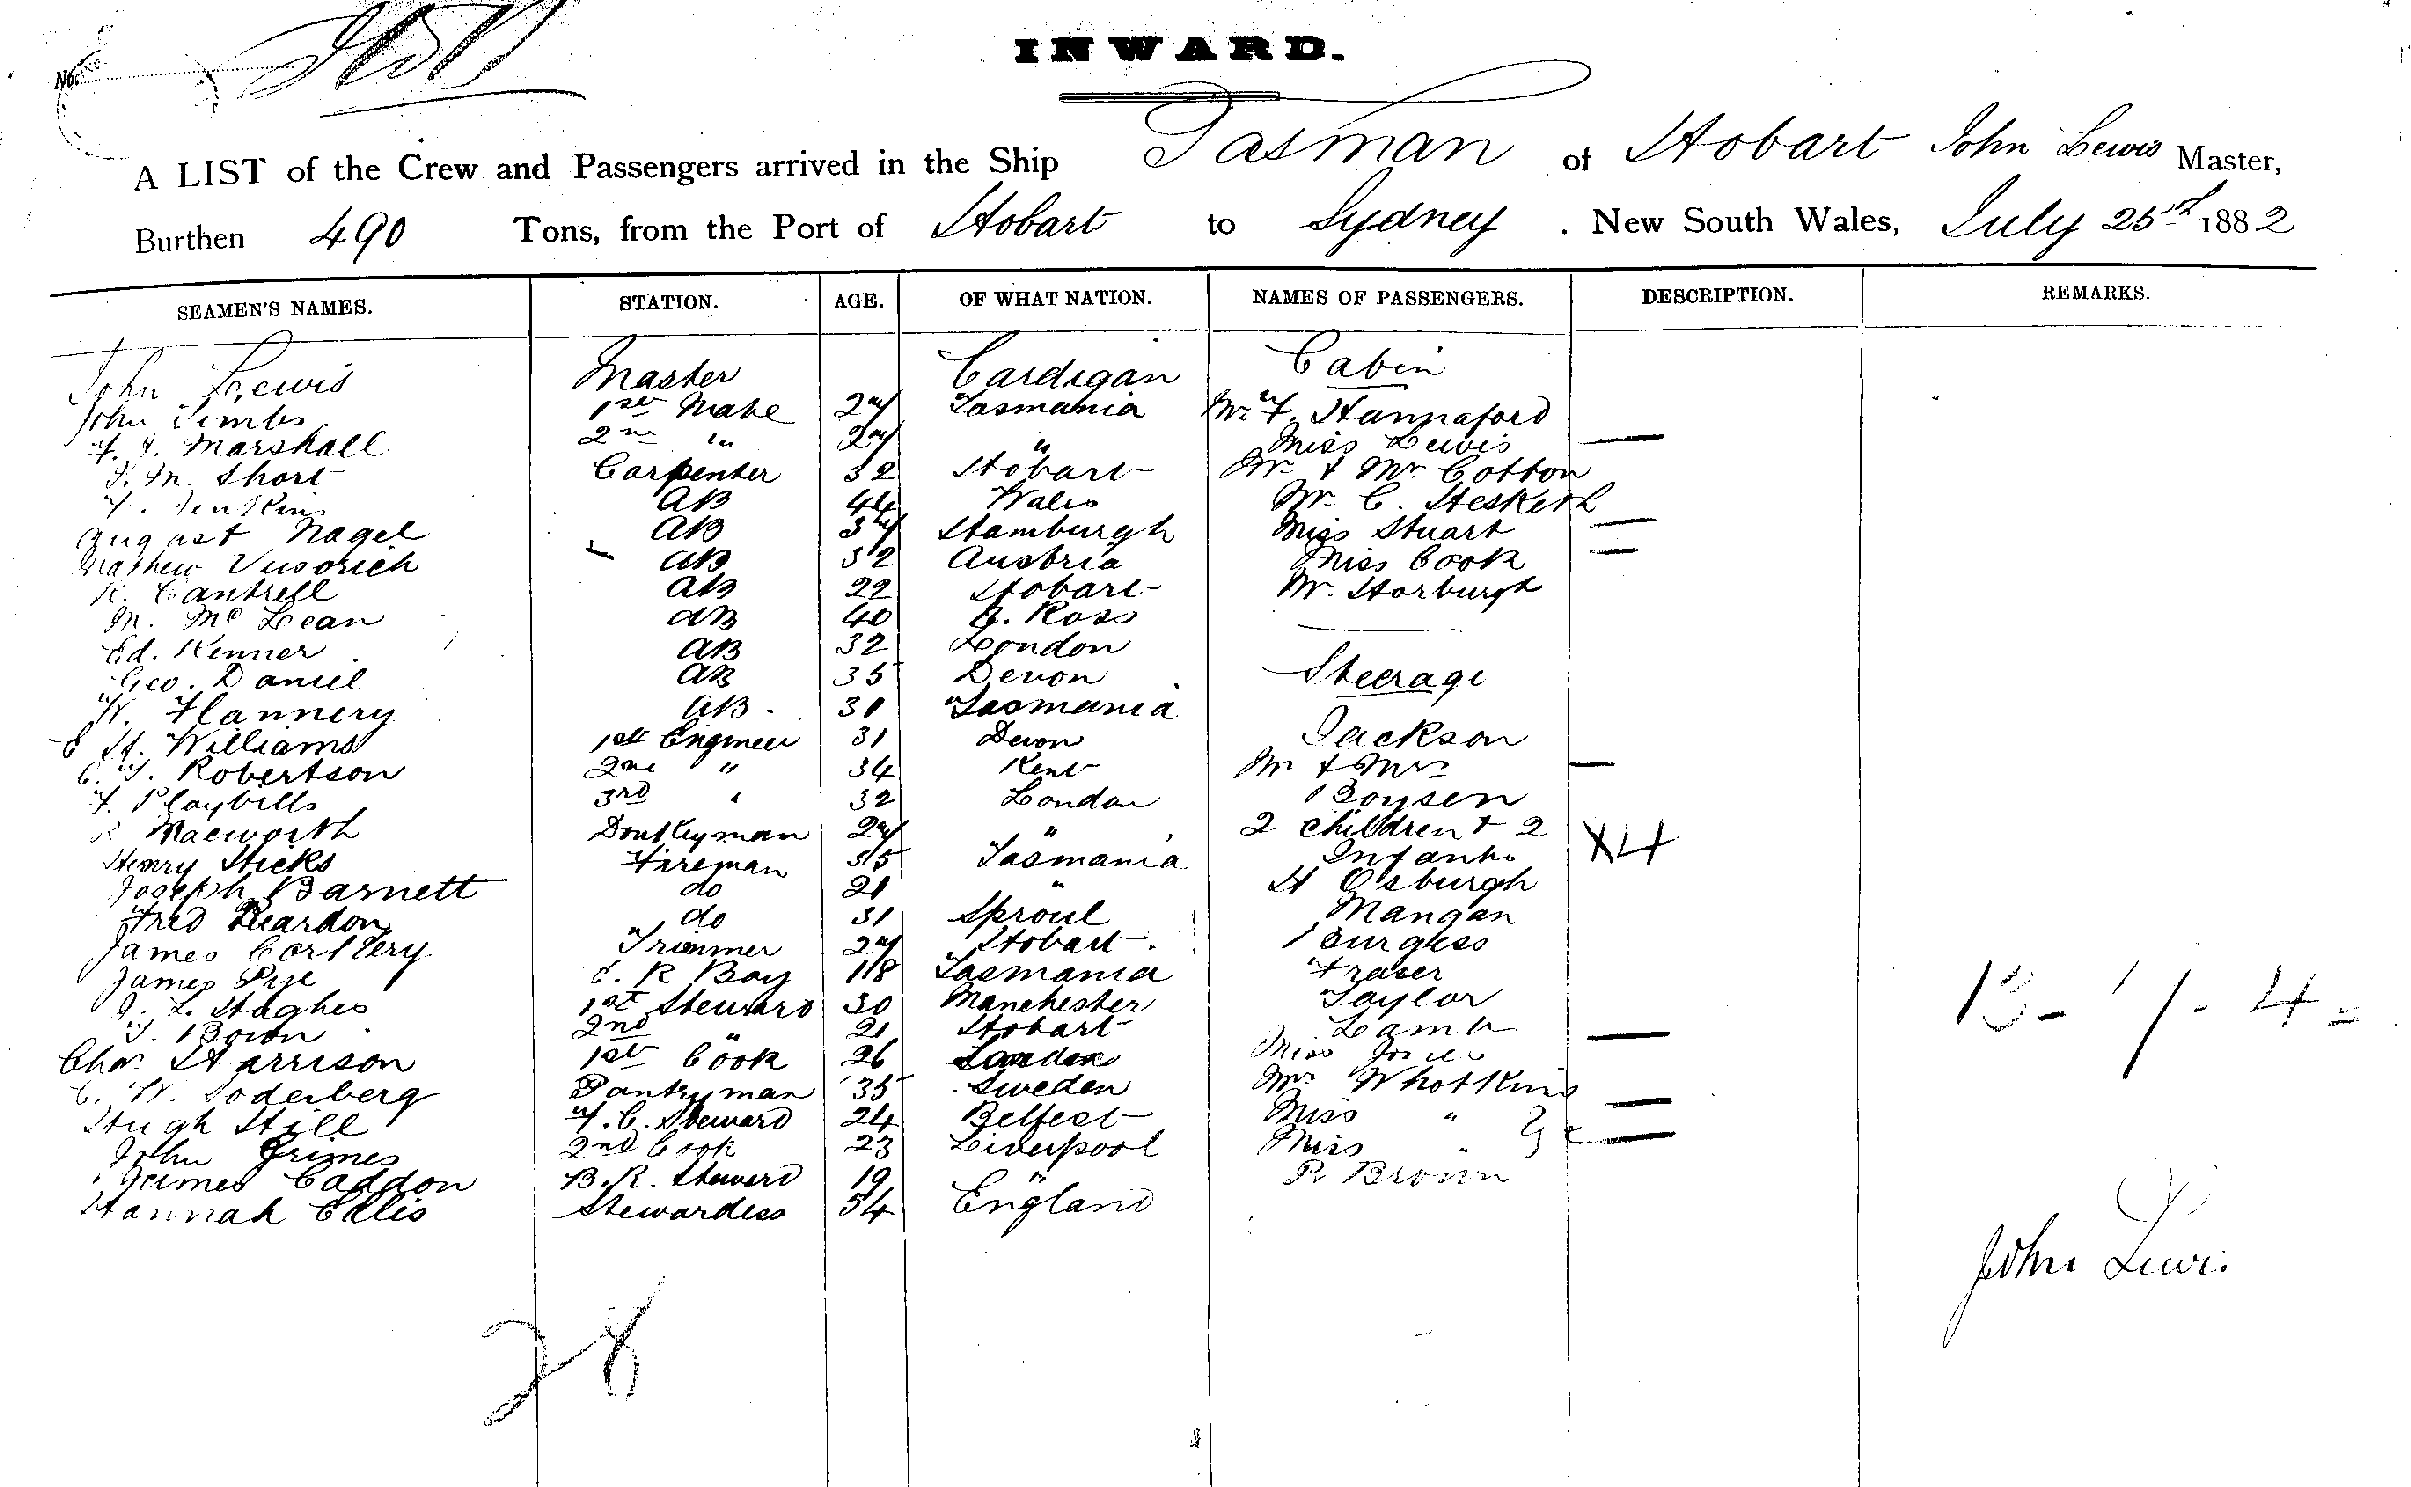 No.
INWARD.
A LIST of the Crew and Passengers arrived in the Ship Tasman of Hobart John Lewis Master,
Burthen 490 Tons, from the Port of Hobart to Sydney . New South Wales, July 25th 1882
SEAMEN'S NAMES. STATION. AGE. OF WHAT NATION. NAMES OF PASSENGERS. DESCRIPTION. REMARKS.
John Lewis Master Cardigan Cabin
John Timbs 1st Mate 27 Tasmania Mr F. Hannaford
Marshall 2nd " 27 " Miss Lewis
Short Carpenter 32 Hobart Mr & Mrs Cotton
Jenkins AB 44 Wales Mr C. Hesketh
August Nagel AB 37 Hamburgh Miss Stuart
Mathew Vusovich AB 32 Austria Miss Cook
Cantrell AB 22 Hobart Mr. Horburgh
M. McLean AB 40 Ross
Ed. Kenner AB 32 London
Geo. Daniel AB 35 Devon Steerage
W. Flannery AB 30 Tasmania
H. Williams 1st Engineer 31 Devon Jackson
Robertson 2nd " 34 Kent Mr & Mrs
Playbills 3rd " 32 London Boysen
Macworth Donkeyman 27 " 2 children & 2
Henry Hicks Fireman 35 Tasmania Infants X4
Joseph Barnett do 21 " H Osburgh
Fred Reardon do 31 Sproul Mangan
James Corkery Trimmer 27 Hobart Burgess
James Pye E. R Boy 18 Tasmania Fraser
J. L. Hughes 1st Steward 30 Manchester Taylor
Bown 2nd " 21 Hobart Lamb
Chas Harrison 1st Cook 26 London Miss
C. W. Soderberg Pantryman 35 Sweden Mrs Whotkins
Hugh Hill F. C. Steward 24 Belfast Miss "
John Grimes 2nd Cook 23 Liverpool Miss "
James Caddon B. R. Steward 19 " R Brown
Hannah Ellis Stewardess 54 England
13 - 7 - 4 =
John Lewis
28